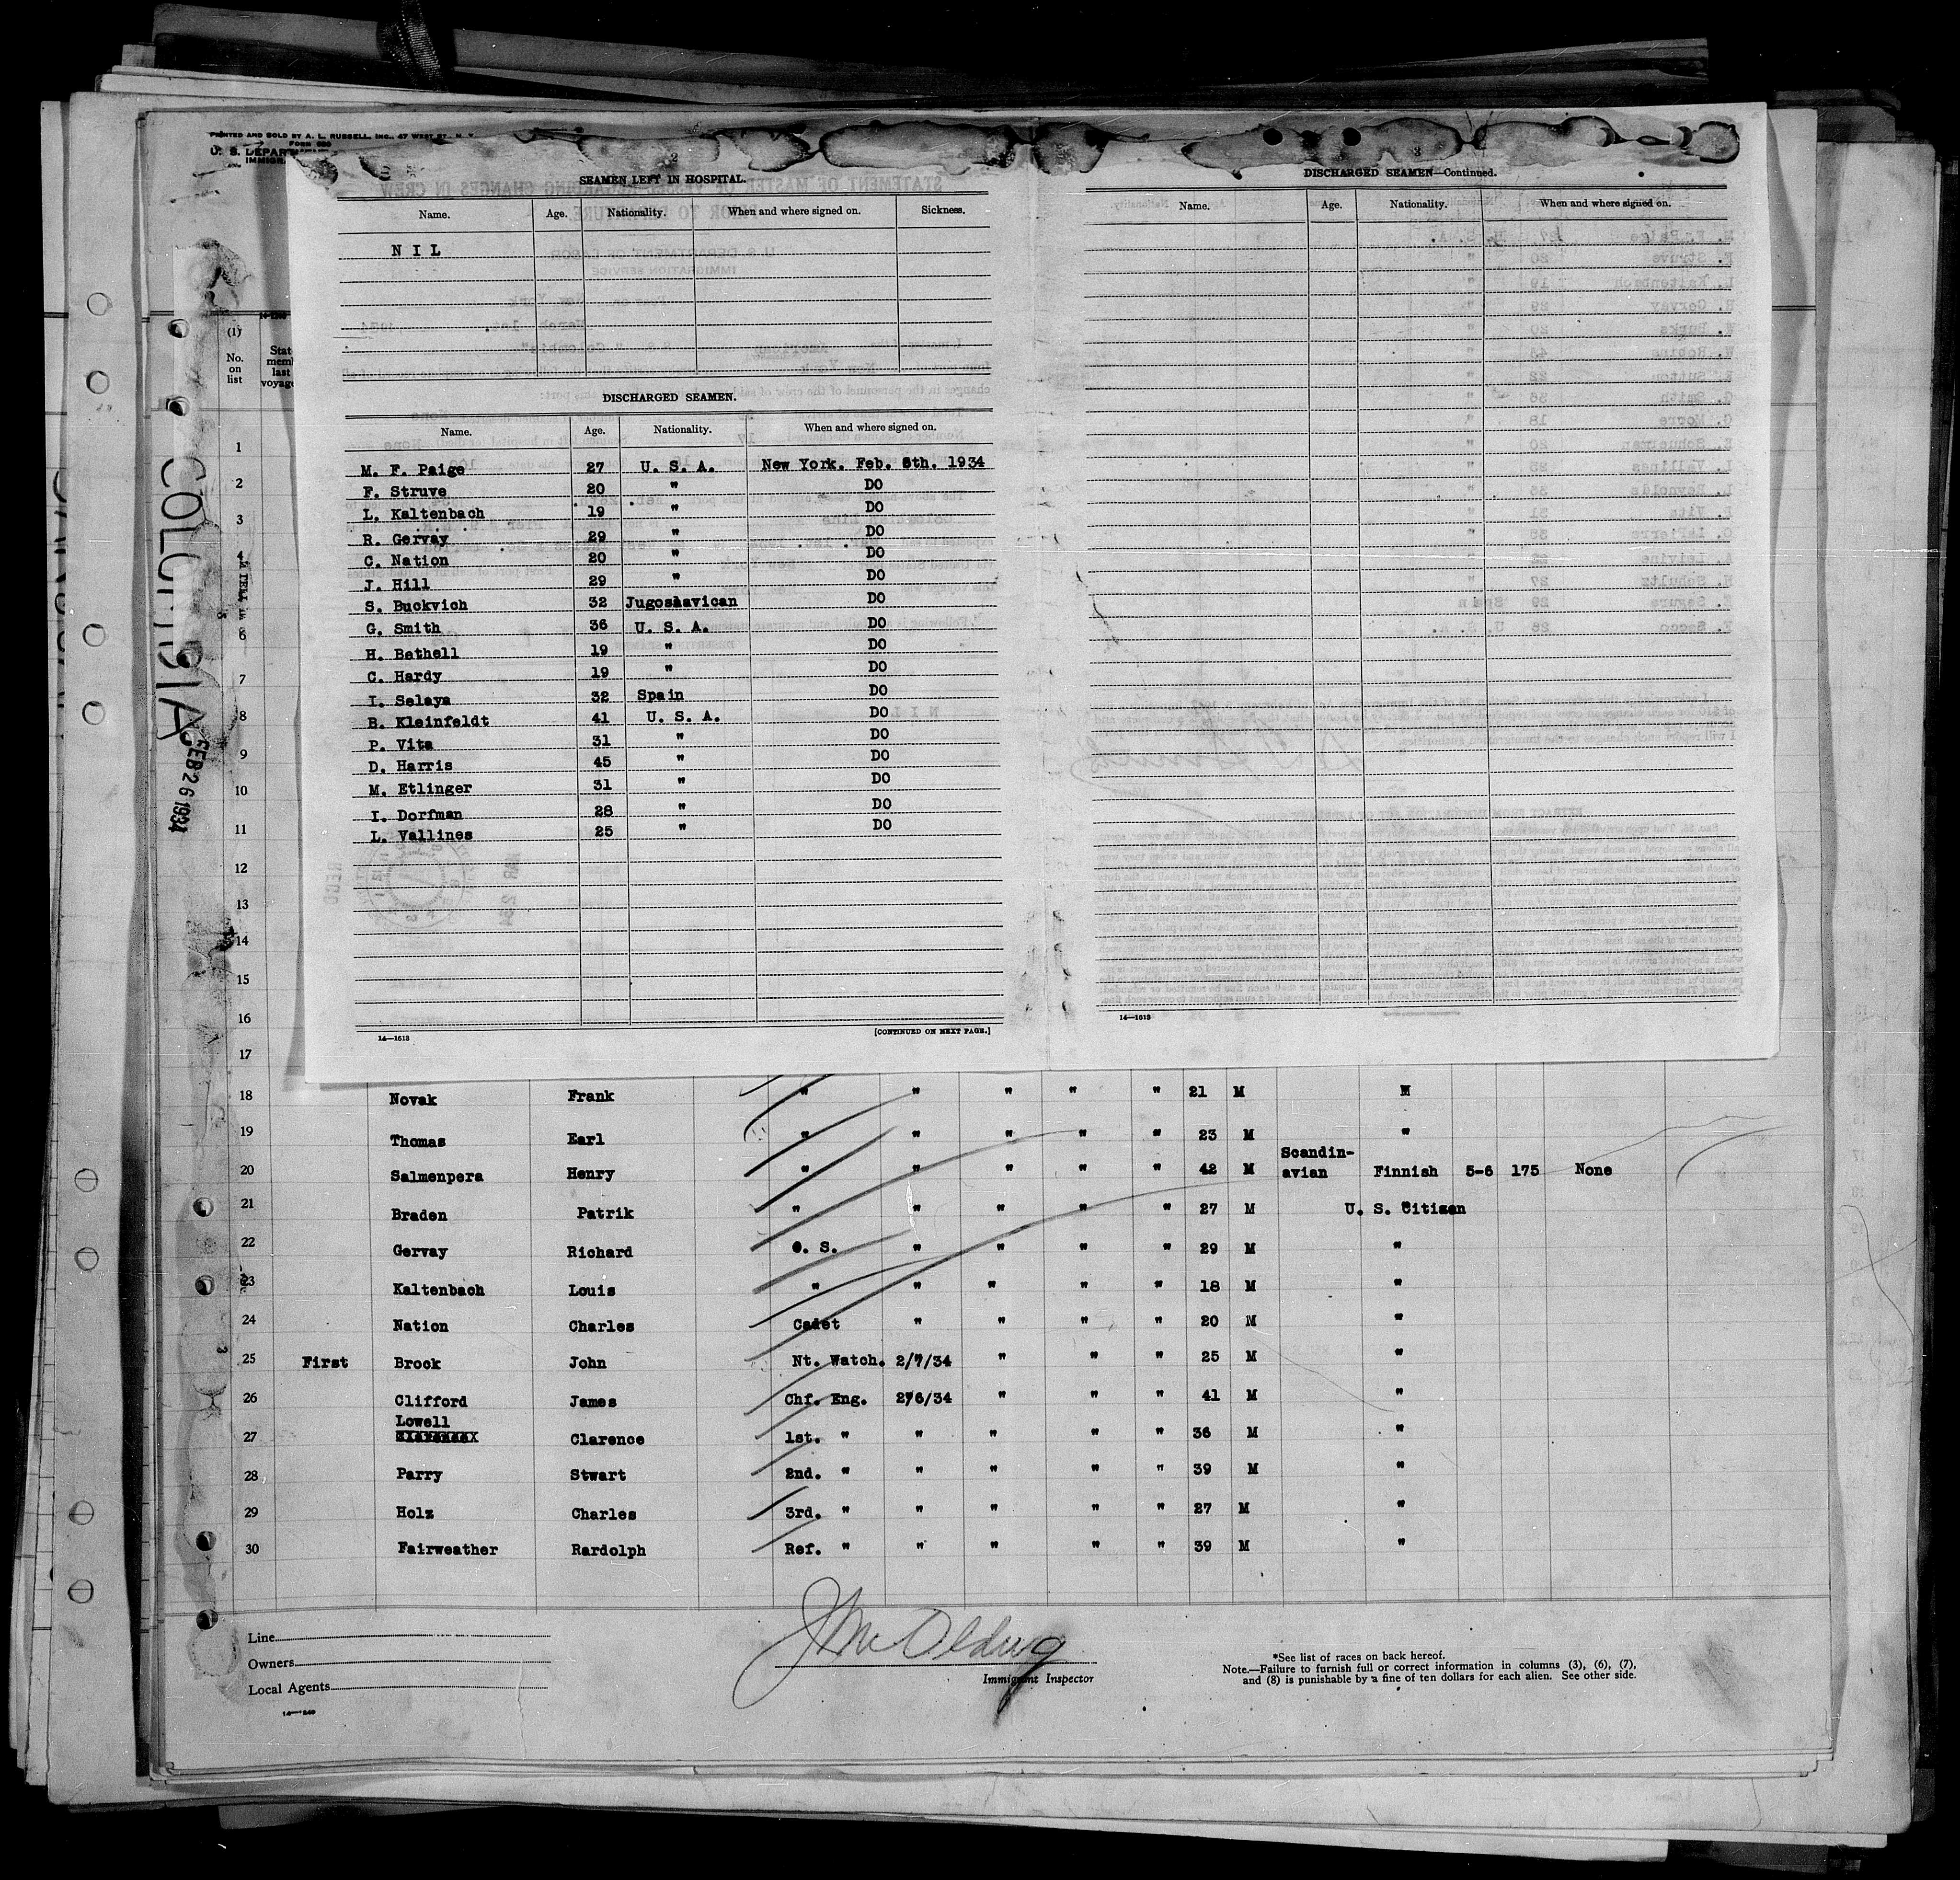 PRINTED AND SOLD BY A. L. RUSSELL, INC., 47 WEST ST., N. Y.
U. S. DEPARTMENT
COLOMBIA
FEB 26 1934
(1)
No. on list
2
SEAMEN LEFT IN HOSPITAL.
Name. Age. Nationality. When and where signed on. Sickness.
N I L
DISCHARGED SEAMEN.
Name. Age. Nationality. When and where signed on.
M. F. Paige 27 U. S. A. New York. Feb. 6th. 1934
F. Struve 20 " DO
L. Kaltenbach 19 " DO
R. Gervay 29 " DO
C. Nation 20 " DO
J. Hill 29 " DO
S. Buckvich 32 Jugoslavican DO
G. Smith 36 U. S. A. DO
H. Bethell 19 " DO
C. Hardy 19 " DO
I. Selaya 32 Spain DO
B. Kleinfeldt 41 U. S. A. DO
P. Vita 31 " DO
D. Harris 45 " DO
M. Etlinger 31 " DO
I. Dorfman 28 " DO
L. Vallines 25 " DO
14—1613 [CONTINUED ON NEXT PAGE.]
3
DISCHARGED SEAMEN—Continued.
Name. Age. Nationality. When and where signed on.
14—1613
1
2
3
4
6
7
8
9
10
11
12
13
14
15
16
17
18 Novak Frank " " " " " 21 M "
19 Thomas Earl " " " " " 23 M "
20 Salmenpera Henry " " " " " 42 M Scandin-
avian Finnish 5-6 175 None
21 Braden Patrik " " " " " 27 M U. S. Citizen
22 Gervay Richard O. S. " " " " 29 M "
23 Kaltenbach Louis " " " " " 18 M "
24 Nation Charles Cadet " " " " 20 M "
25 First Brook John Nt. Watch. 2/7/34 " " " 25 M "
26 Clifford James Chf. Eng. 2/6/34 " " " 41 M "
Lowell
27 Clarence 1st. " " " " " 36 M "
28 Parry Stwart 2nd. " " " " " 39 M "
29 Holz Charles 3rd. " " " " " 27 M "
30 Fairweather Rardolph Ref. " " " " " 39 M "
Line
Owners
Local Agents
Immigrant Inspector
*See list of races on back hereof.
Note.—Failure to furnish full or correct information in columns (3), (6), (7),
and (8) is punishable by a fine of ten dollars for each alien. See other side.